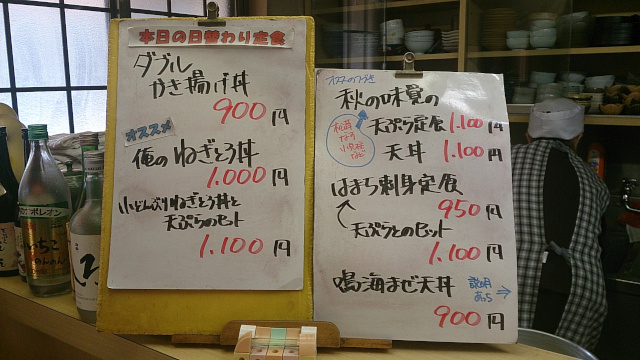 本日の日替わり定食
ダブル
かき揚げ丼
900円
オススメ
俺のねぎとろ丼
1.000円
小どんぶりねぎとろ丼と
天ぷらのセット
1.100円
秋の味覚の
天ぷら定食 1.100円
天丼 1.100円
はまち刺身定食
950円
天ぷらとのセット
1.100円
鳴海まぜ天丼
説明
あっち
900円